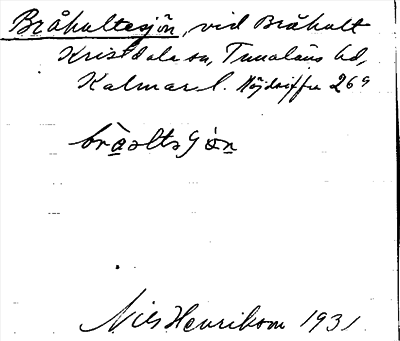 Bråhultesjön, vid Bråhult
Kristdala sn, Tunaläns hd,
Kalmar l. Höjdsiffra 269
bràoltsjön
Nils Henrikson 1931